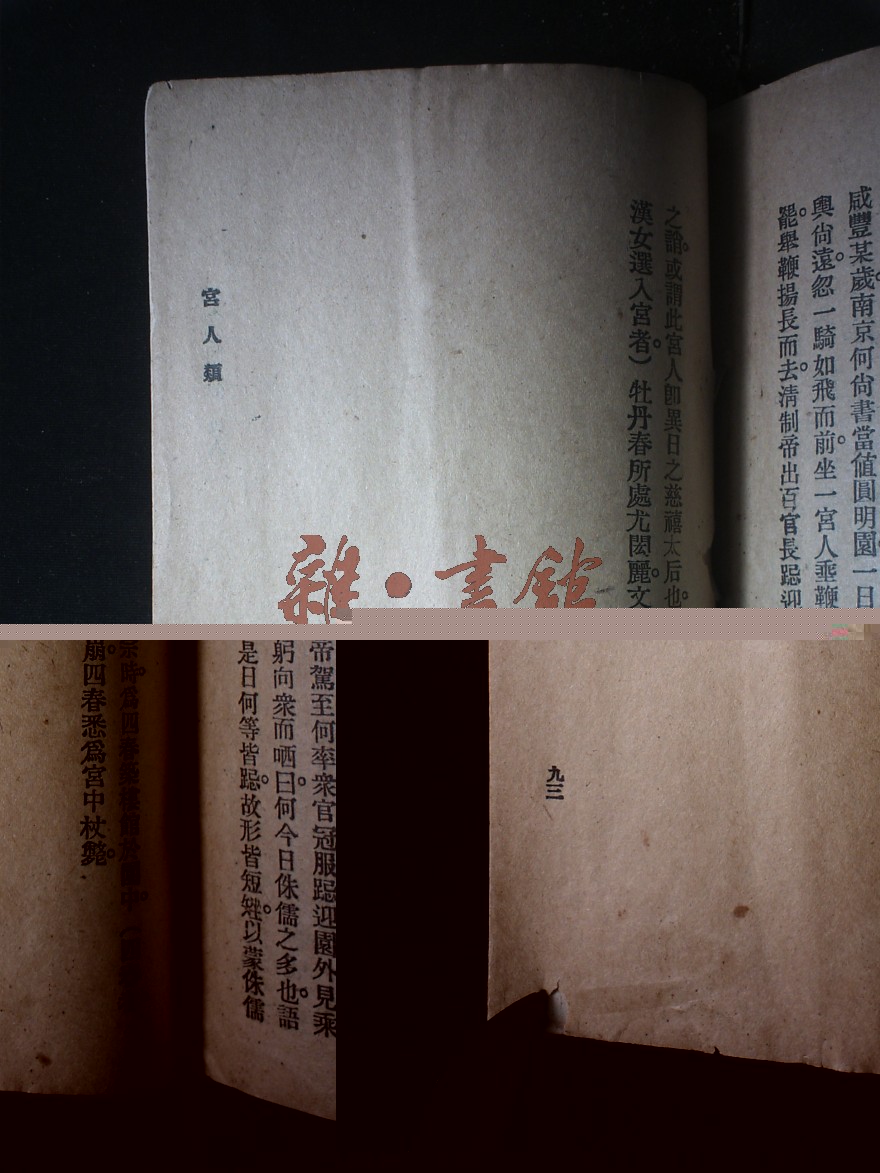 咸豐某歲。南京何尙書當値圓明園。一日帝駕至。何率衆官冠服跽迎園外。見乘
輿尙遠。忽一騎如飛而前。坐一宮人。垂鞭躬向衆而哂曰。何今日侏儒之多也。語
罷。舉鞭揚長而去。淸制帝出。百官長跽迎是日何等皆跽。故形皆短矬。以蒙侏儒
之誚。或謂此宮人卽異日之慈禧太后也。宗時爲四春築樓館於園中。（
漢女選入宮者。）牡丹春所處尤閎麗。文崩。四春悉爲宮中杖斃。
宮人類
九三
雜·書館